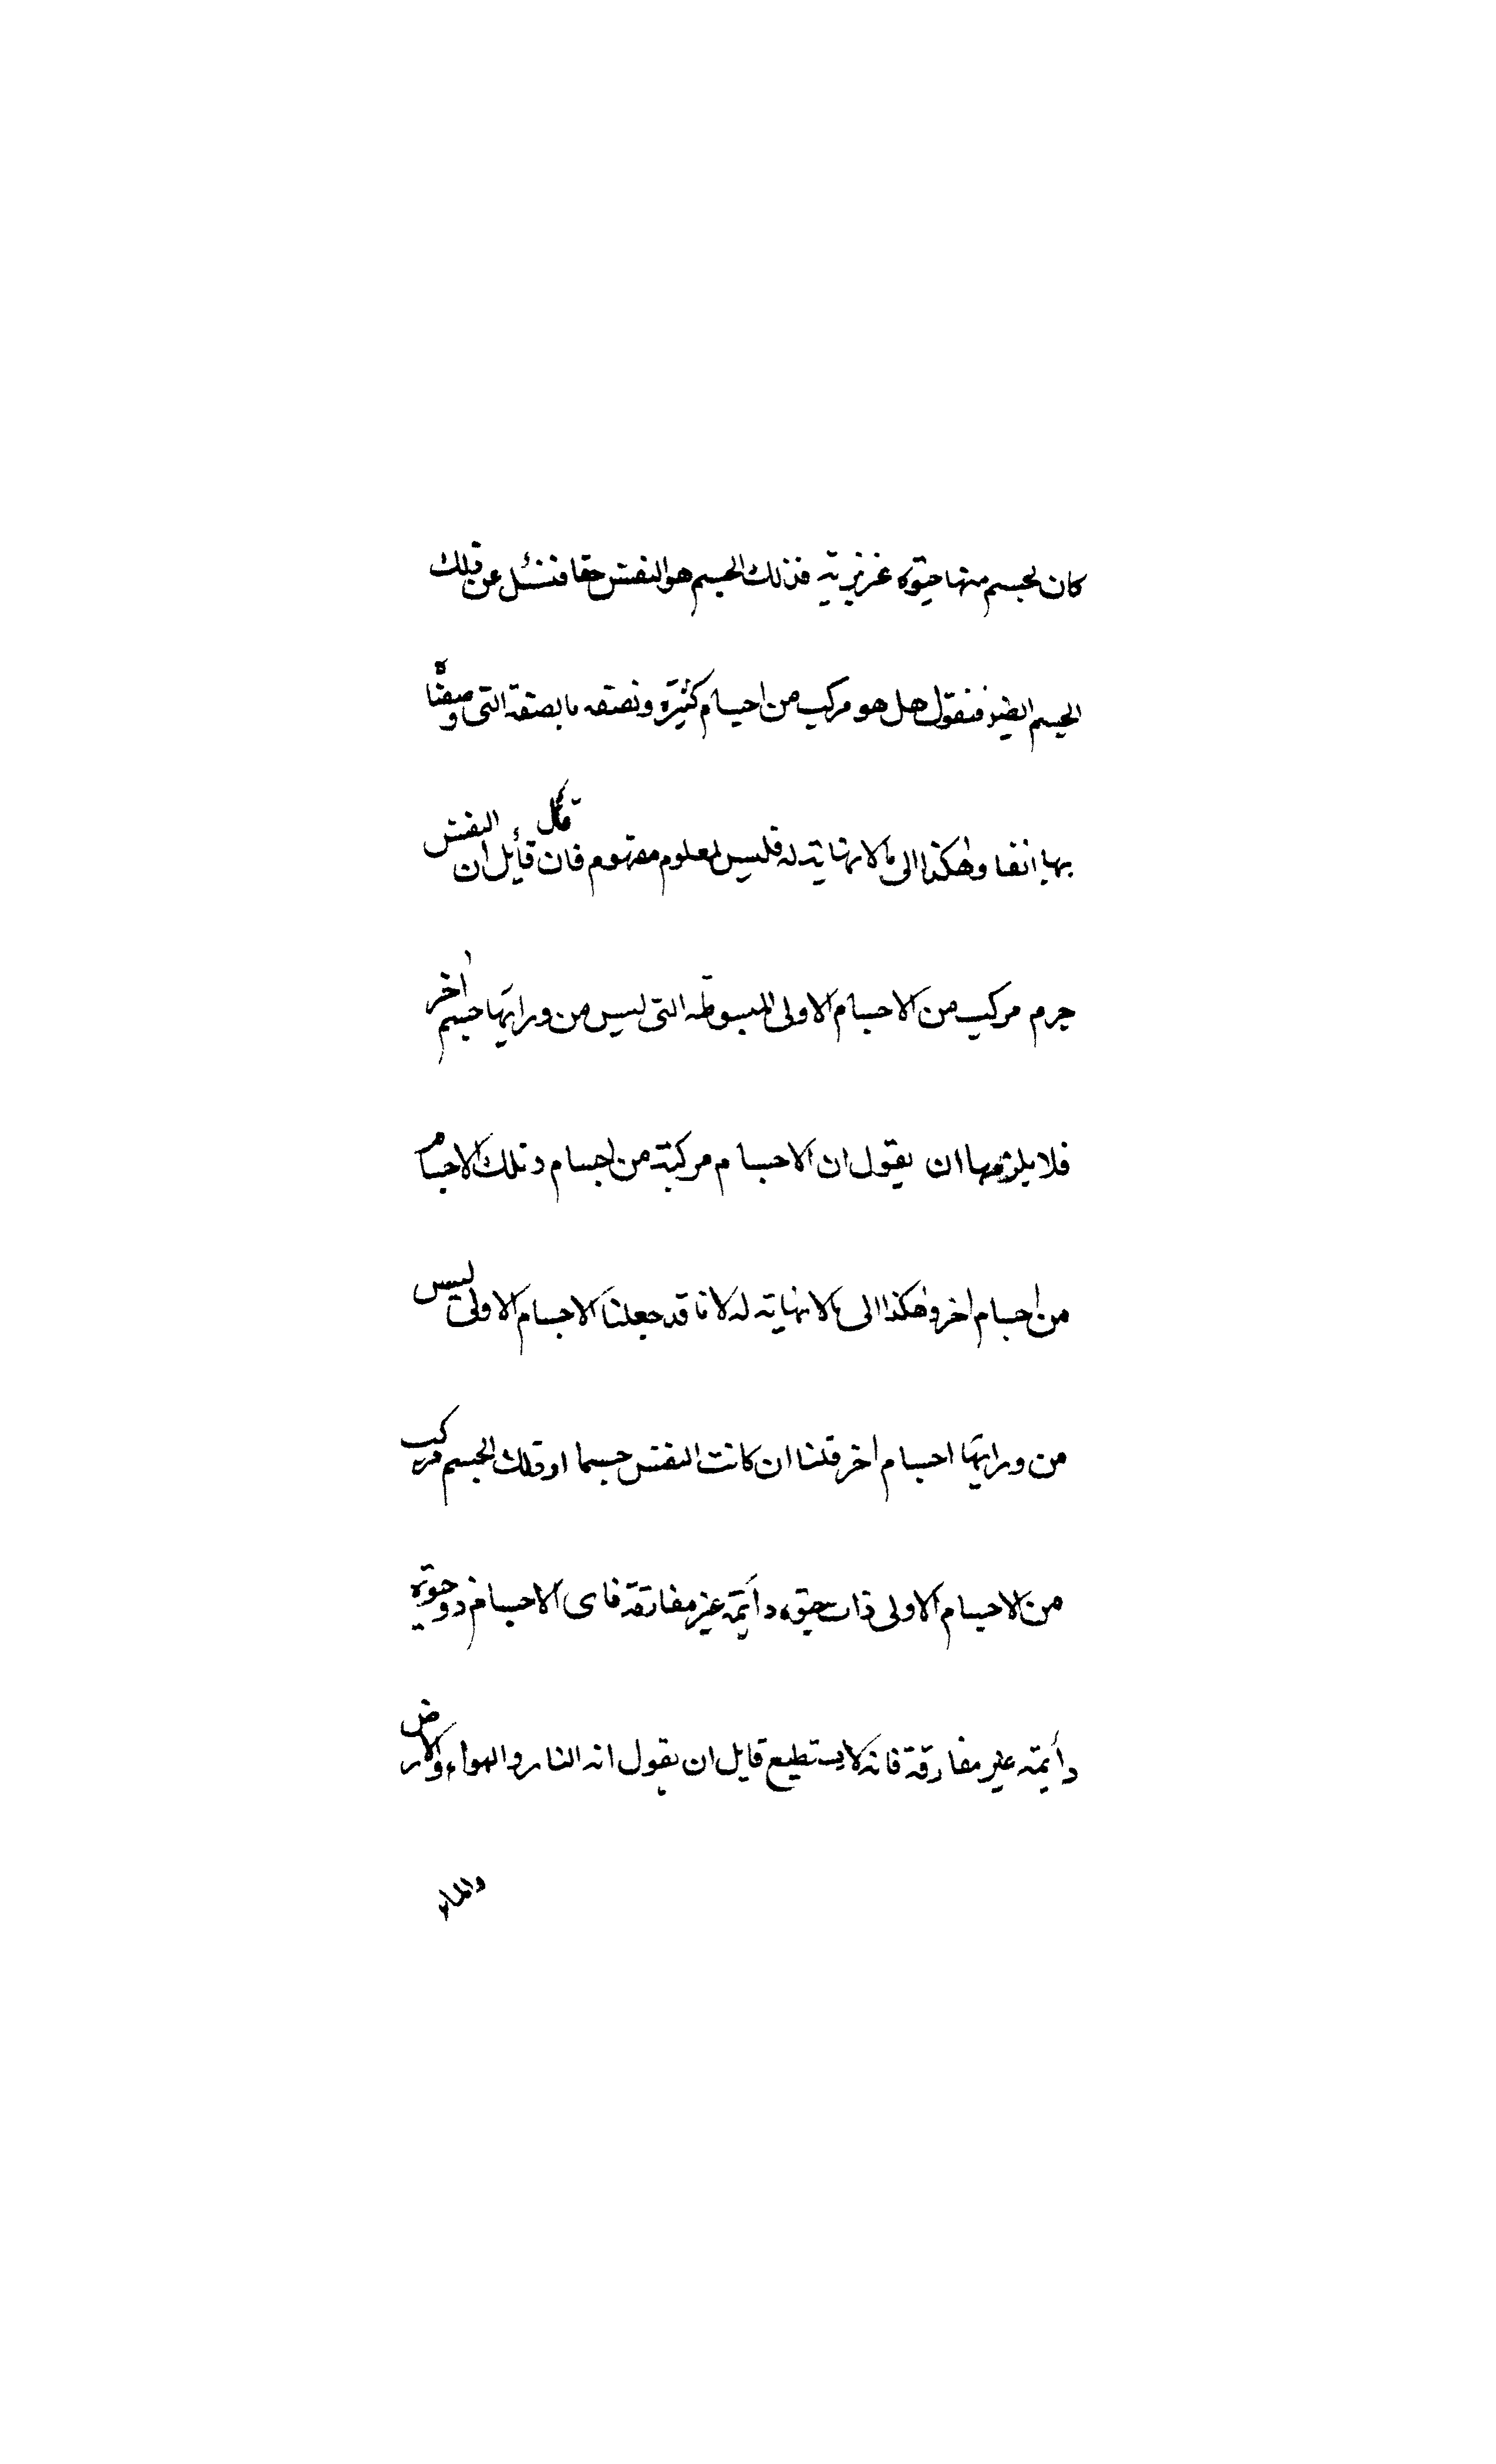 كان لجسم منها حيوة غزيزية فذلك الجسم هو النفس حقا فنسئل عن قلك
الجسم ايضا فنقول هل هو مركب من اجسام كثيرة ونصفه بالصفة التى وصفناه
بها انفا وهكذا الى مالانهاية له فليس لمعلوم مفهوم فان قال قأيل ان النفس
جرم مركب من الاجسام الاولى المبسوطة التى ليس من ورايها جسم اخر
فلا يلزمها ان يقول ان الاجسام مركبة من اجسام وتلك الاجسام
من اجسام اخر وهكذا الى مالانهاية له لانا قد جعلنا الاجسام الاولى ليس
من ورايها اجسام اخر قلنا ان كانت النفس جسما او قلك الجسم مركب
من الاجسام الاولى ذات حيوة دأيمة غير مفارقة فاى الاجسام ذو حيوة
دأيمة غير مفارقة فانه لا يستطيع قايل ان يقول انه النار والهواء والارض
والماء